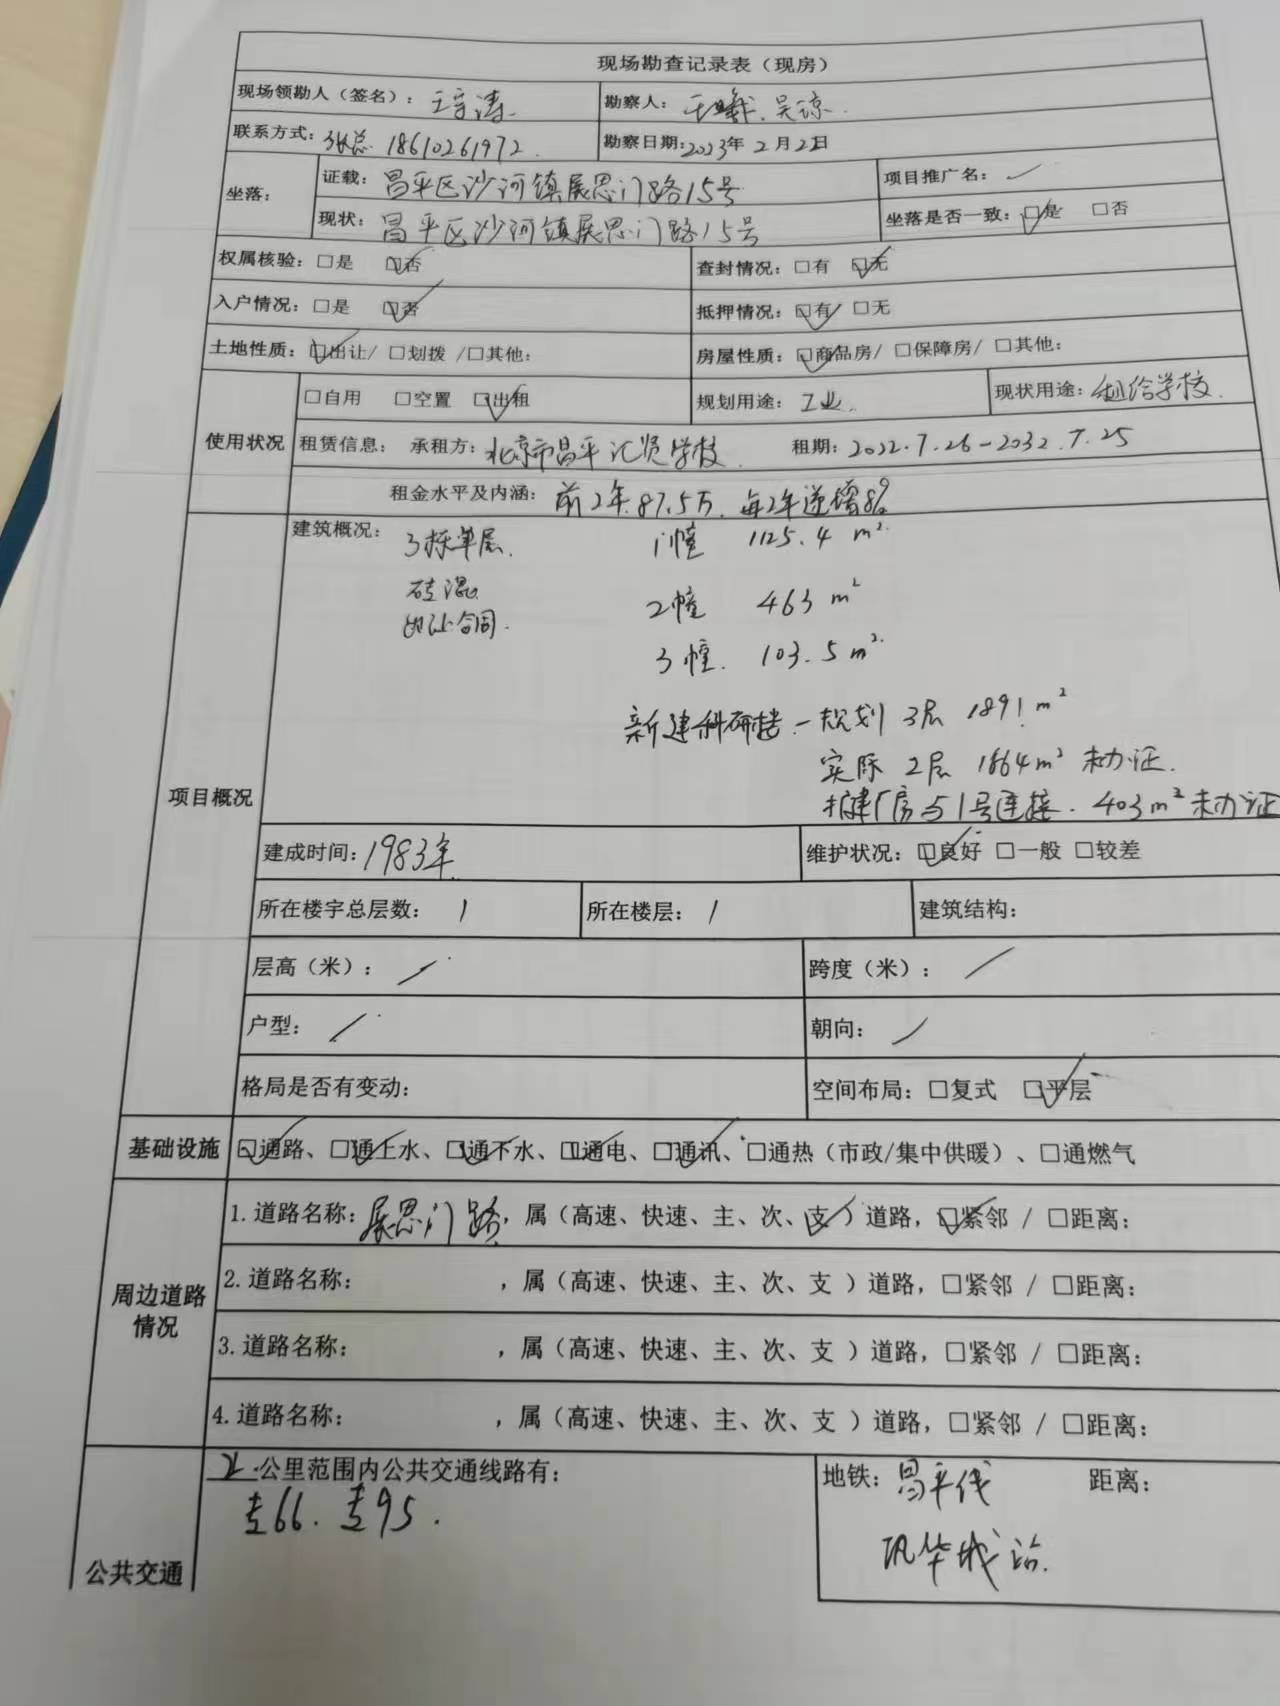 现场勘查记录表（现房）
现场领勘人（签名）：王宇涛 勘察人：王曦、吴琼
联系方式：张总 18610261972 勘察日期：2023年2月22日
坐落：
证载：昌平区沙河镇展思门路15号 项目推广名：/
现状：昌平区沙河镇展思门路15号 坐落是否一致：☑是 □否
权属核验：□是 ☑否 查封情况：□有 ☑无
入户情况：□是 ☑否 抵押情况：☑有 □无
土地性质：☑出让/ □划拨 /□其他： 房屋性质：☑商品房/ □保障房/ □其他：
使用状况
□自用 □空置 ☑出租 规划用途：工业 现状用途：租给学校
租赁信息： 承租方：北京市昌平汇贤学校 租期：2022.7.26-2032.7.25
租金水平及内涵：前2年87.5万，每2年递增8%
项目概况
建筑概况：3栋单层. 1幢 1125.4 m²
砖混 2幢 463 m²
出让合同. 3幢. 103.5 m²
新建科研楼-规划 3层 1891 m²
实际 2层 1664m² 未办证.
扩建厂房与1号连接. 403m² 未办证
建成时间：1983年 维护状况：☑良好 □一般 □较差
所在楼宇总层数：1 所在楼层：1 建筑结构：
层高（米）：/ 跨度（米）：/
户型：/ 朝向：/
格局是否有变动： 空间布局：□复式 ☑平层
基础设施 ☑通路、☑通上水、☑通下水、☑通电、☑通讯、□通热（市政/集中供暖）、□通燃气
周边道路情况
1.道路名称：展思门路，属（高速、快速、主、次、支✓）道路，☑紧邻 / □距离：
2.道路名称： ，属（高速、快速、主、次、支 ）道路，□紧邻 / □距离：
3.道路名称： ，属（高速、快速、主、次、支 ）道路，□紧邻 / □距离：
4.道路名称： ，属（高速、快速、主、次、支 ）道路，□紧邻 / □距离：
公共交通
2 公里范围内公共交通线路有： 地铁：昌平线 距离：
专66. 专95. 巩华城站.